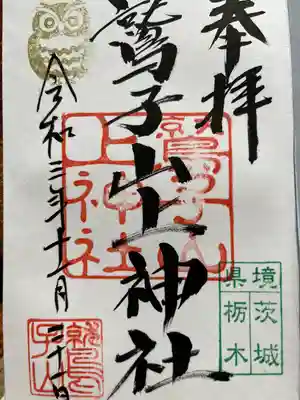 奉拝
鷲子山上神社
令和三年十一月二十日
鷲子山
上神社
境茨城
県栃木
鷲
子山